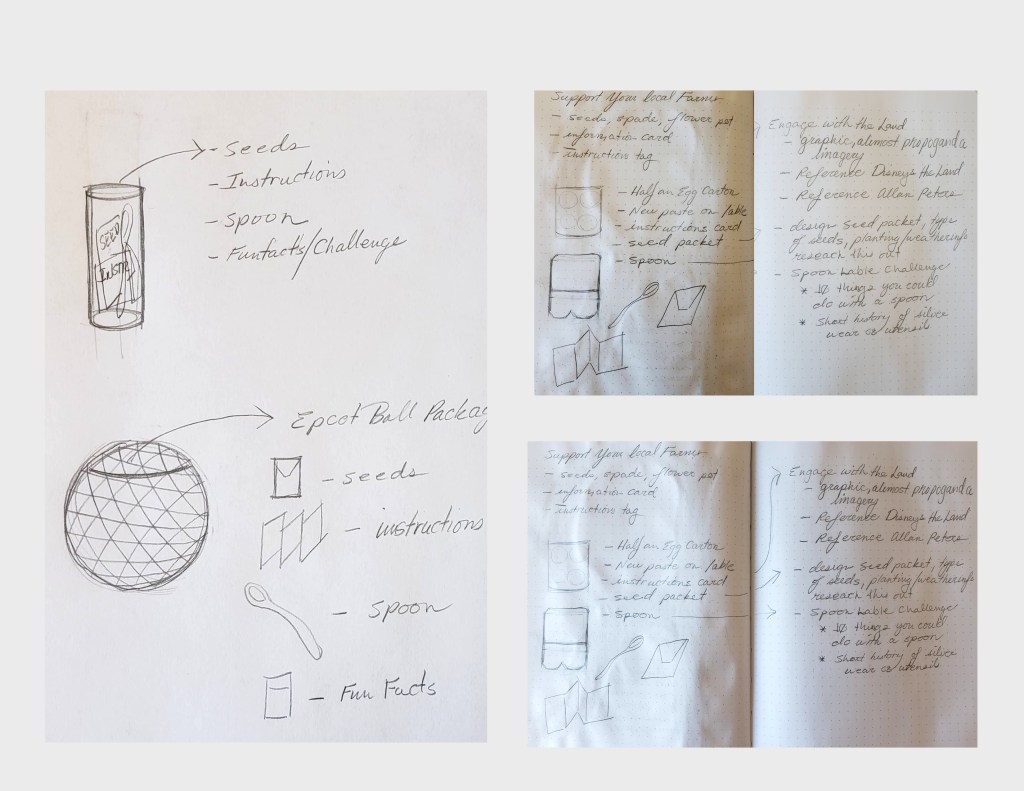 - Seeds
- Instructions
- Spoon
- Funfacts/Challenge
SEED
Epcot Ball Packag
- seeds
- instructions
- Spoon
- Fun Facts
Support Your local Farmer
- seeds, spade, flower pot
- information card
- instruction tag
- Half an Egg Carton
- New paste on lable
- instructions card
- seed packet
- Spoon
Engage with the Land
- graphic, almost propoganda
imagery
- Reference Disney's the Land
- Reference Allan Peters
- design seed packet, type
of seeds, planting/weatherinfo
reseach this out
- Spoon Lable Challenge
* 10 things you could
do with a spoon
* Short history of silver
wear & utensils
Support Your local Farmer
- seeds, spade, flower pot
- information card
- instruction tag
- Half an Egg Carton
- New paste on lable
- instructions card
- seed packet
- Spoon
Engage with the Land
- graphic, almost propoganda
imagery
- Reference Disney's the Land
- Reference Allan Peters
- design seed packet, type
of seeds, planting/weatherinfo
reseach this out
- Spoon Lable Challenge
* 10 things you could
do with a spoon
* Short history of silver
wear & utensils